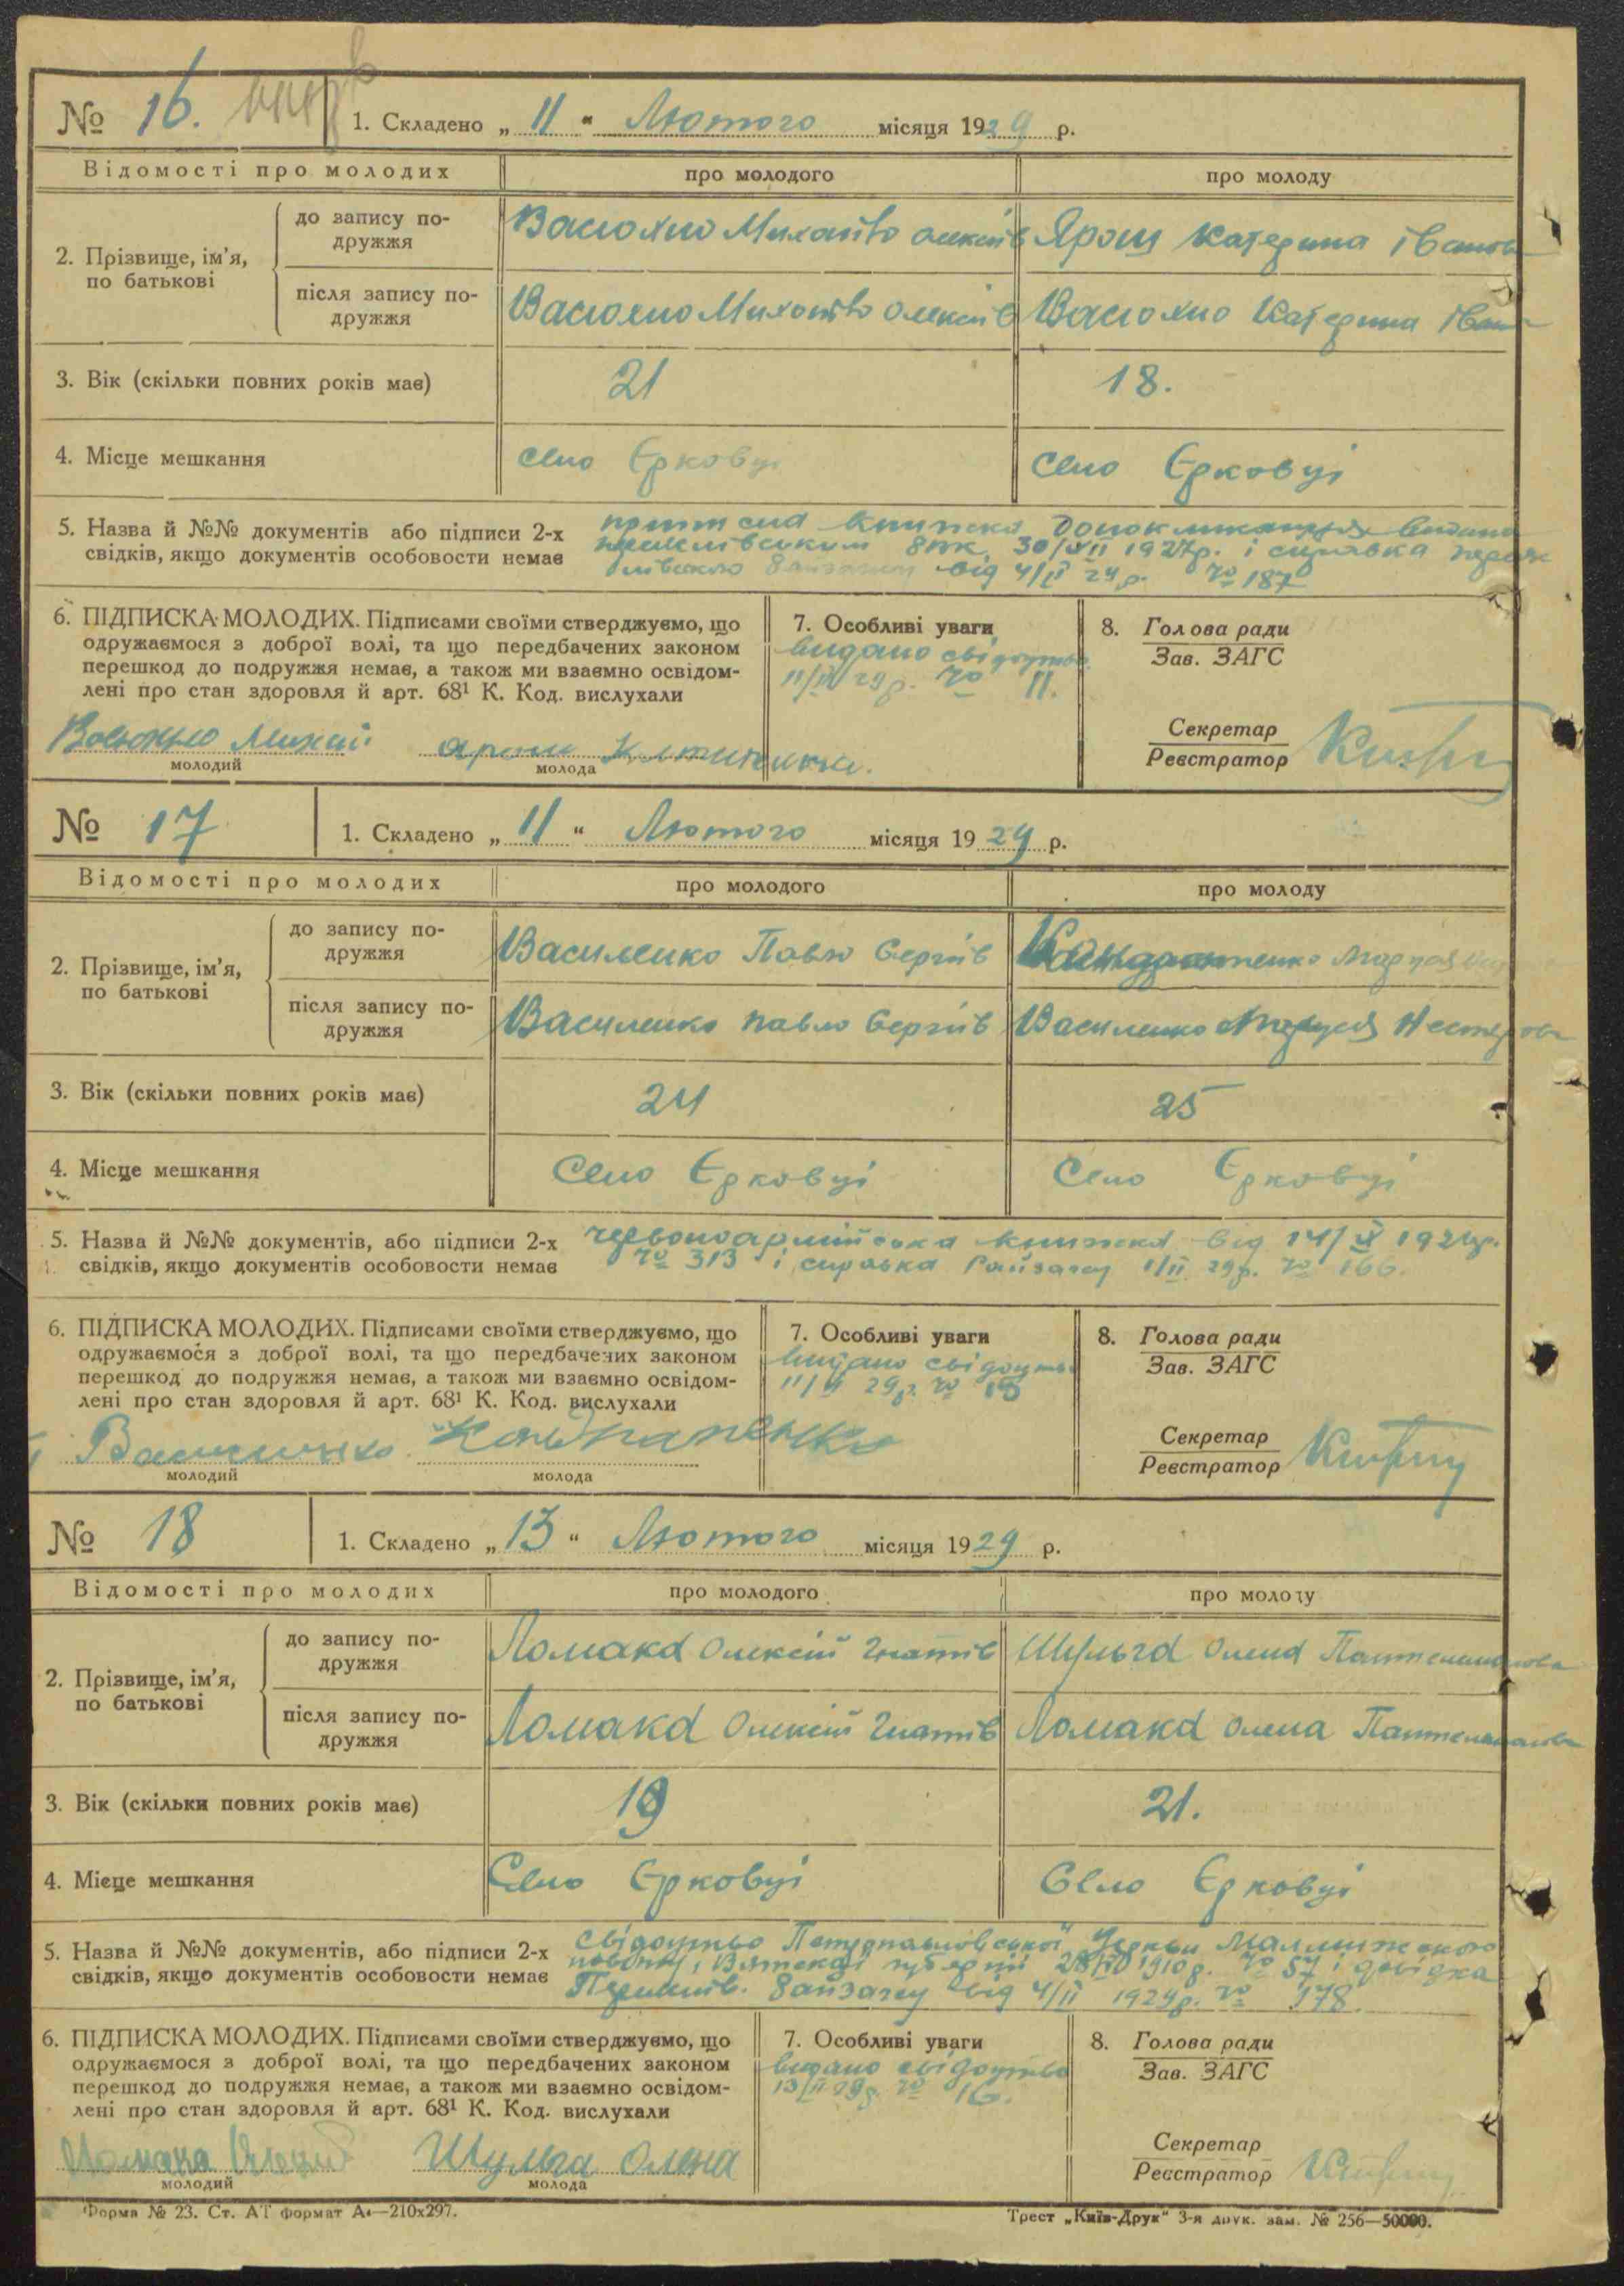 № 16. 1. Складено „ 11 “ Лютого місяця 1929 р.
Відомості про молодих про молодого про молоду
2. Прізвище, ім'я, по батькові
до запису подружжя Васюхно Михайло Олексіїв Ярош Катерина Іванов
після запису подружжя Васюхно Михайло Олексіїв Васюхно Катерина Іван
3. Вік (скільки повних років має) 21 18.
4. Місце мешкання село Єрковці село Єрковці
5. Назва й №№ документів або підписи 2-х
свідків, якщо документів особовости немає
книжка видана
30/VII 1927р. і справка
від 4/II 29 р. № 187
6. ПІДПИСКА МОЛОДИХ. Підписами своїми стверджуємо, що
одружаємося з доброї волі, та що передбачених законом
перешкод до подружжя немає, а також ми взаємно освідом-
лені про стан здоровля й арт. 68¹ К. Код. вислухали
молодий молода
7. Особливі уваги
видано свідоцтво
11/II 29 р. № 11.
8. Голова ради
Зав. ЗАГС
Секретар
Реєстратор
№ 17 1. Складено „ 11 “ Лютого місяця 1929 р.
Відомості про молодих про молодого про молоду
2. Прізвище, ім'я, по батькові
до запису подружжя Василенко Павло Сергіїв
після запису подружжя Василенко Павло Сергіїв Василенко Маруся Нестерова
3. Вік (скільки повних років має) 24 25
4. Місце мешкання Село Єрковці Село Єрковці
5. Назва й №№ документів, або підписи 2-х
свідків, якщо документів особовости немає
червоноармійська книжка від 14/
№ 313 і справка Райзагсу 1/II 29р. № 166.
6. ПІДПИСКА МОЛОДИХ. Підписами своїми стверджуємо, що
одружаємося з доброї волі, та що передбачених законом
перешкод до подружжя немає, а також ми взаємно освідом-
лені про стан здоровля й арт. 68¹ К. Код. вислухали
Василенко
молодий молода
7. Особливі уваги
видано свідоцтво
11/II 29р. №
8. Голова ради
Зав. ЗАГС
Секретар
Реєстратор
№ 18 1. Складено „ 13 “ Лютого місяця 1929 р.
Відомості про молодих про молодого про молоду
2. Прізвище, ім'я, по батькові
до запису подружжя Ломака Олексій Гнатів Шульга Олена Пантелимонова
після запису подружжя Ломака Олексій Гнатів Ломака Олена Пантелимонова
3. Вік (скільки повних років має) 19 21.
4. Місце мешкання Село Єрковці Село Єрковці
5. Назва й №№ документів, або підписи 2-х
свідків, якщо документів особовости немає
свідоцтво Петропавловської церкви Малмижського
повіту, Вятської губернії 1910 р. № 57 і довідка
Райзагсу від 4/II 1929р. № 178.
6. ПІДПИСКА МОЛОДИХ. Підписами своїми стверджуємо, що
одружаємося з доброї волі, та що передбачених законом
перешкод до подружжя немає, а також ми взаємно освідом-
лені про стан здоровля й арт. 68¹ К. Код. вислухали
Ломака Шульга Олена
молодий молода
7. Особливі уваги
видано свідоцтво
13/II 29р. № 16.
8. Голова ради
Зав. ЗАГС
Секретар
Реєстратор
Форма № 23. Ст. АТ формат А4—210х297. Трест „Київ-Друк“ 3-я друк. зам. № 256—50000.